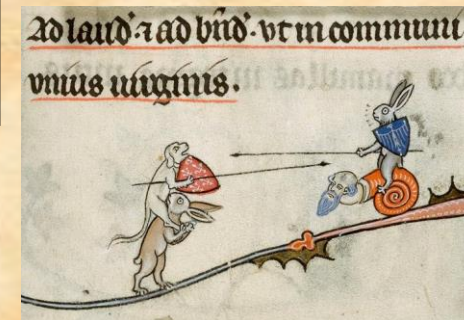 Ad laud' ⁊ ad bñd'. vt in commun
vnius uirginis.